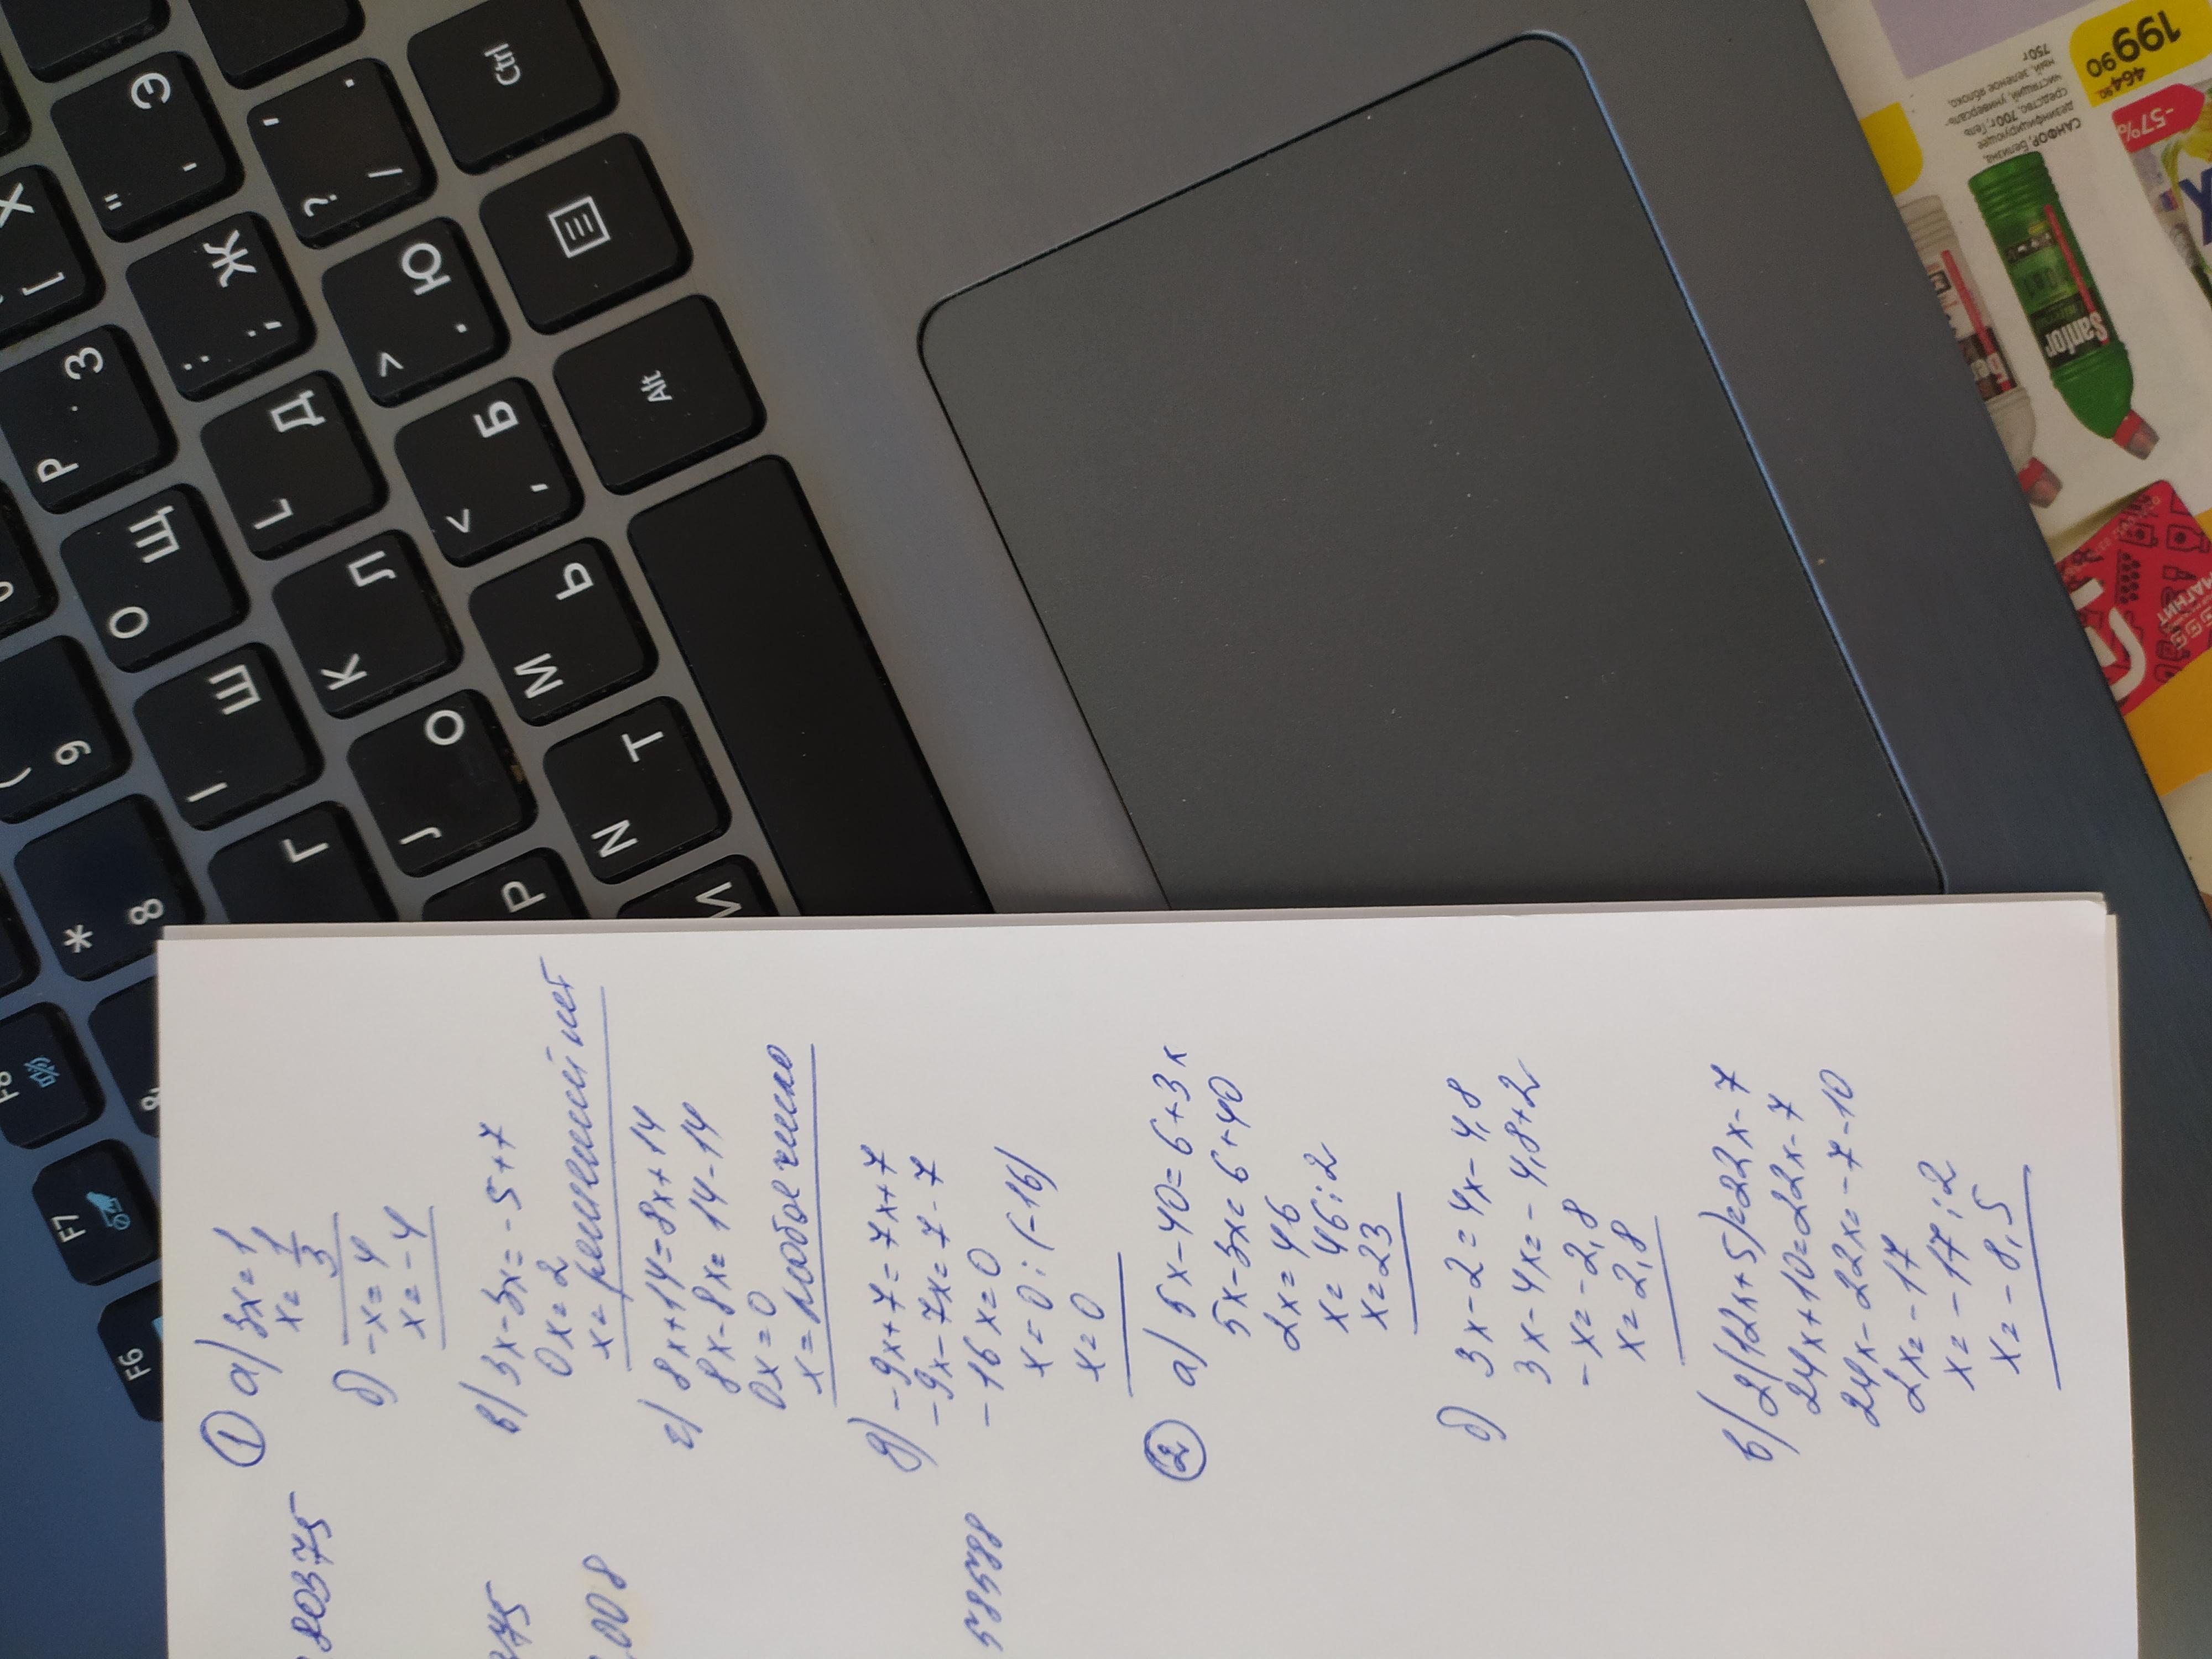 ① а) 3x=1
x=1/3
б) -x=4
x=-4
в) 3x-3x=-5+7
0x=2
x= решений нет
г) 8x+14=8x+14
8x-8x=14-14
0x=0
x= любое число
д) -9x+7=7x+7
-9x-7x=7-7
-16x=0
x=0:(-16)
x=0
② а) 5x-40=6+3x
5x-3x=6+40
2x=46
x=46:2
x=23
б) 3x-2=4x-4,8
3x-4x=-4,8+2
-x=-2,8
x=2,8
в) 2(12x+5)=22x-7
24x+10=22x-7
24x-22x=-7-10
2x=-17
x=-17:2
x=-8,5
80375
008
58588
Ctrl
Alt
F6
F7
F8
* 8
( 9
Э " '
? / .
Х [
Ж : ;
Ю > .
P З
L Д
< Б ,
O Щ
K Л
M Ь
I Ш
J О
N Т
Г
Р
И
199 90
464 90
-57%
САНФОР Белизна,
дезинфицирующее
средство, 700 г; Гель
чистящий, универсаль-
ный, зеленое яблоко,
750 г
Sanfor
МАГНИТ